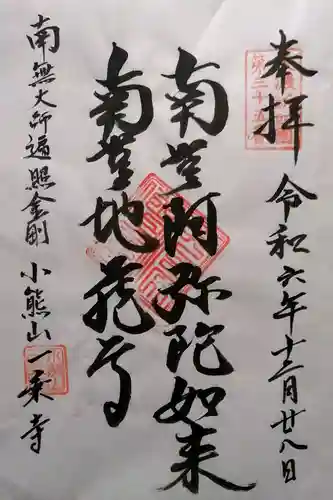 奉拝 令和六年十二月廿八日
南無阿弥陀如来
南無地蔵尊
南無大師遍照金剛 小熊山一乗寺